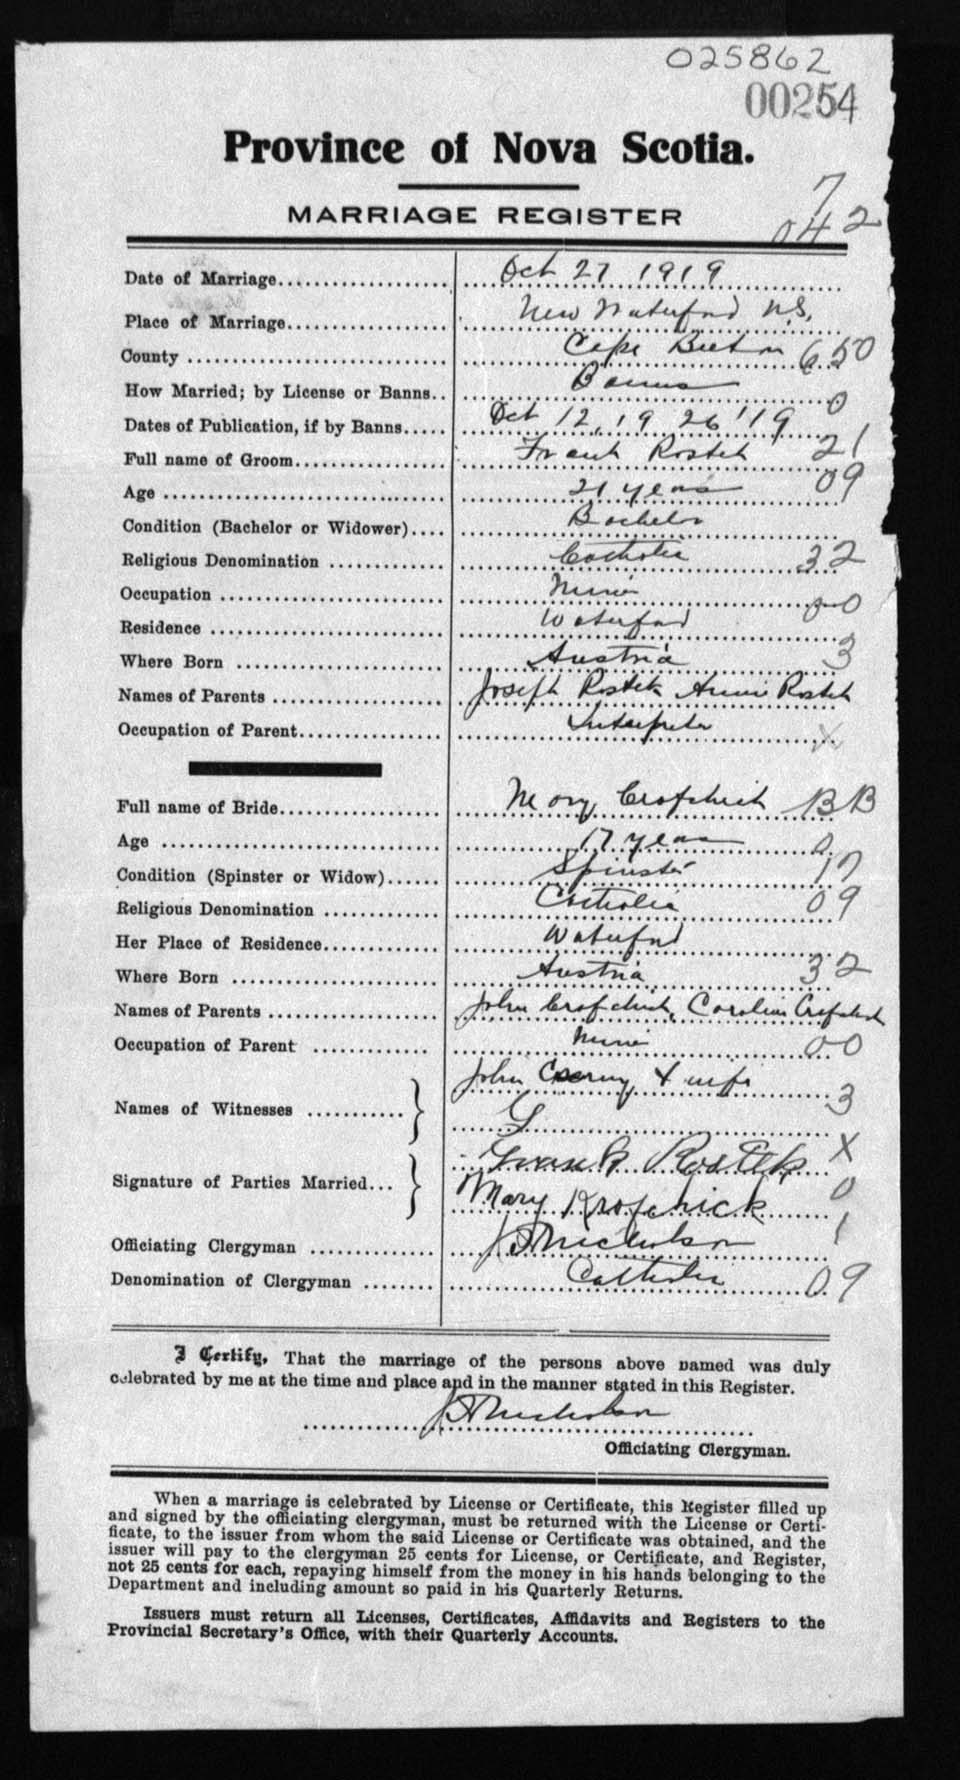 025862
00254
Province of Nova Scotia.
7
MARRIAGE REGISTER
042
Date of Marriage Oct 27 1919
Place of Marriage New Waterford N.S.
County Cape Breton 650
How Married; by License or Banns Banns 0
Dates of Publication, if by Banns Oct 12, 19 26 '19
Full name of Groom Frank Rostek 21
Age 21 years 09
Condition (Bachelor or Widower) Bachelor
Religious Denomination Catholic 32
Occupation Miner 00
Residence Waterford
Where Born Austria 3
Names of Parents Joseph Rostek Annie Rostek
Occupation of Parent Interpreter X
Full name of Bride Mary Crofchick BB
Age 17 years 0
Condition (Spinster or Widow) Spinster 17
Religious Denomination Catholic 09
Her Place of Residence Waterford
Where Born Austria 32
Names of Parents John Crofchick, Caroline Crofchick
Occupation of Parent Miner 00
Names of Witnesses John Czerny & wife 3
X
Signature of Parties Married Frank Rostek 0
Mary Kropchick
Officiating Clergyman J H Nicholson 1
Denomination of Clergyman Catholic 09
I Certify, That the marriage of the persons above named was duly
celebrated by me at the time and place and in the manner stated in this Register.
J H Nicholson
Officiating Clergyman.
When a marriage is celebrated by License or Certificate, this Register filled up
and signed by the officiating clergyman, must be returned with the License or Certi-
ficate, to the issuer from whom the said License or Certificate was obtained, and the
issuer will pay to the clergyman 25 cents for License, or Certificate, and Register,
not 25 cents for each, repaying himself from the money in his hands belonging to the
Department and including amount so paid in his Quarterly Returns.
Issuers must return all Licenses, Certificates, Affidavits and Registers to the
Provincial Secretary's Office, with their Quarterly Accounts.